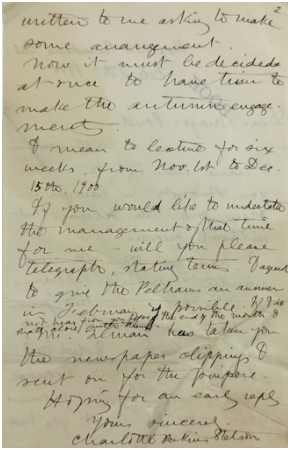 2
written to me asking to make
some arrangement.
Now it must be decided
at once to have time to
make the autumn engage
ments.
I mean to lecture for six
weeks, from Nov. 1st to Dec.
15th, 1900
If you would like to undertake
the management of that time
for me - will you please
telegraph, stating terms. I want
to give the Pelhams an answer
in if possible. If I do
not hear from you by the end of the month I
shall
has taken you
the newspaper clippings I
sent on for the purpose.
Hoping for an early reply
Yours sincerely
Charlotte Perkins Stetson